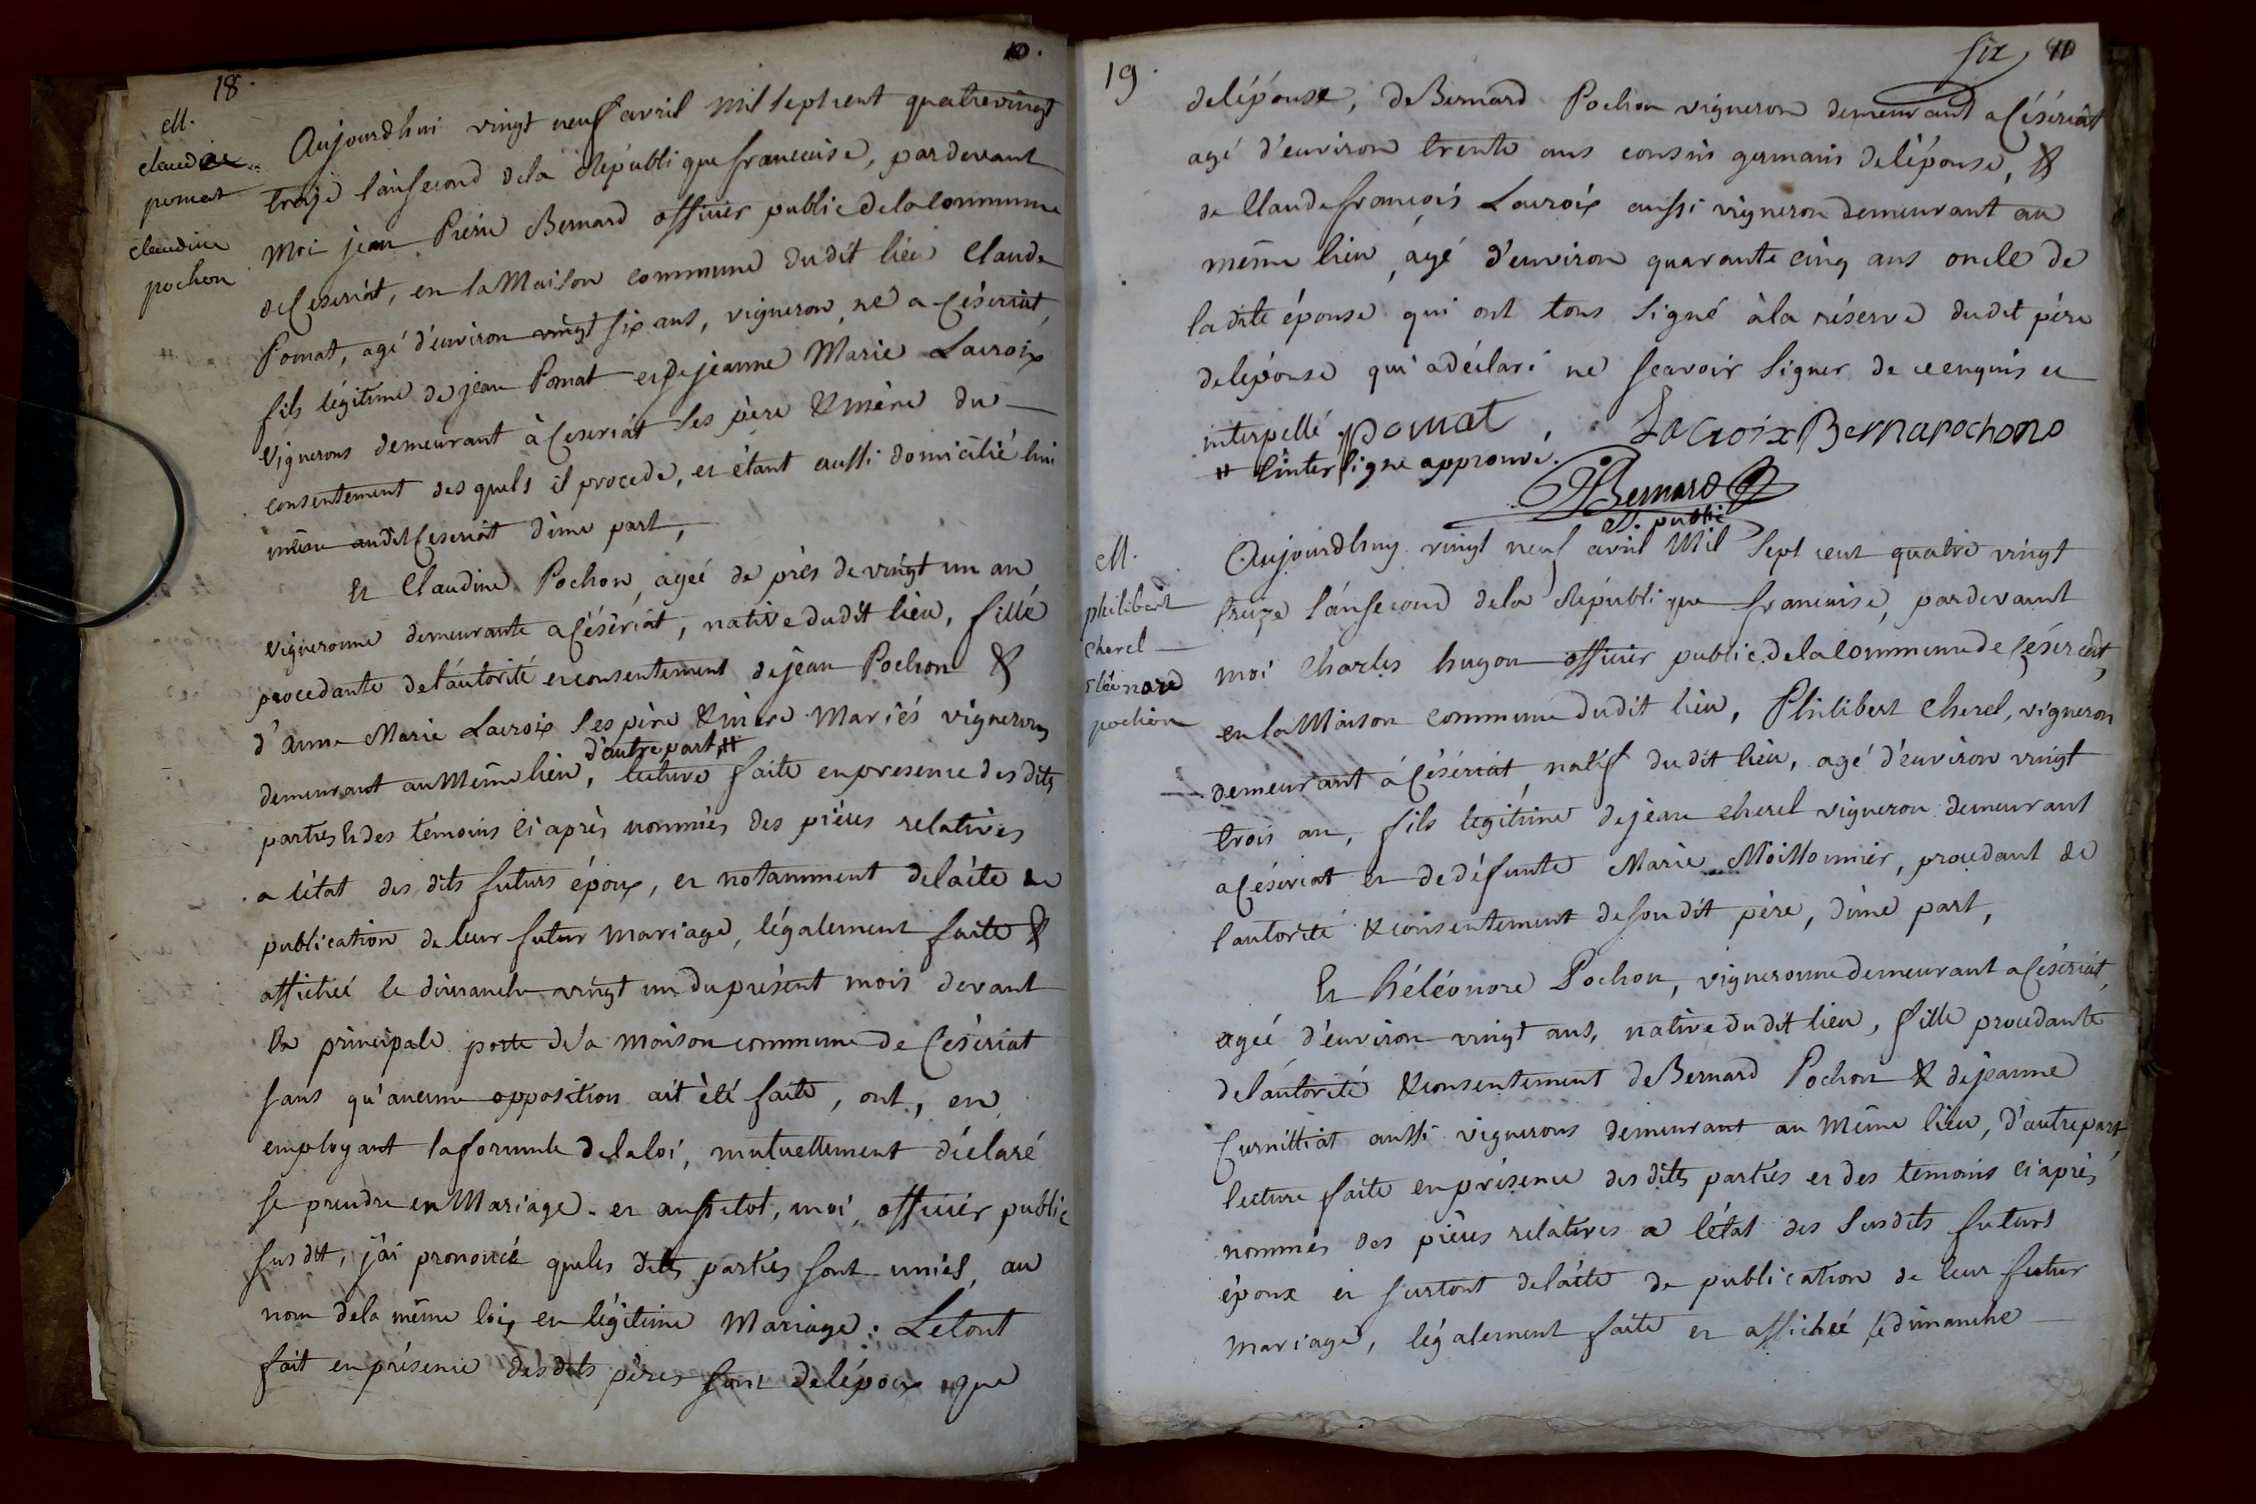 18.
10.
M.
claude
pomat
claudine
pochon
Aujourdhui vingt neuf avril mil sept cent quatrevingt
treize l'an second dela République francaise, pardevant
Moi jean Pierre Bernard officier public dela Commune
de Ceseriat, en la Maison commune du dit lieu Claude
Pomat, agé d'environ vingt six ans, vigneron, né a Céseriat,
fils légitime de jean Pomat et de jeanne Marie Lacroix
Vignerons demeurant à Ceseriat ses père & mère du
consentement desquels il procede, et étant aussi domicilié lui
même audit Ceseriat d'une part,
Et Claudine Pochon, ageé de près de vingt un an
vigneronne demeurante a Céseriat, native dudit lieu, fille
procedante del'autorité et consentement de jean Pochon &
d'anne Marie Lacroix ses père & mère Mariés vignerons
demeurant au Même lieu, d'autre part,# lecture faite en presence desdits
parties & des témoins ci après nommés des pièces relatives
a l'état des dits futurs époux, et notamment de l'acte de
publication de leur futur mariage, légalement faite &
affichée le dimanche vingt un du présent mois devant
la principale porte de la maison commune de Céseriat
sans qu'aucune opposition ait été faite, ont, en
employant la formule de la loi, mutuellement déclaré
se prendre en Mariage. et aussitot, moi, officier public
susdit, j'ai prononcé que les dits parties sont uniés, au
nom dela même loi, en légitime Mariage : Le tout
fait en présence desdits pères de l'époux que
19.
six 11
de l'épouse, de Bernard Pochon vigneron demeurant a Céseriat
agé d'environ trente ans cousin germain de l'épouse, &
de Claude françois Lacroix aussi vigneron demeurant au
même lieu, agé d'environ quarante cinq ans oncle de
la dite épouse qui ont tous signé à la réserve dudit père
de l'épouse qui a déclaré ne scavoir signer de ce enquis et
interpellé pomat, LaCroix Bernapochono
# l'interligne approuvé.
Bernard
off. public
M.
philibert
cherel
Eléonore
pochon
Aujourdhuy vingt neuf avril Mil sept cent quatre vingt
treize l'an second dela République francaise, pardevant
moi Charles hugon officier public de la Commune de Céseriat,
en la Maison commune dudit lieu, Philibert Cherel, vigneron
demeurant á Céseriat, natif du dit lieu, agé d'environ vingt
trois an, fils légitime de jean cherel vigneron demeurant
a Céseriat et de défunte Marie Moissonnier, procedant de
l'autorité & consentement de son dit père, d'une part,
Et héléonore Pochon, vigneronne demeurant a Céseriat,
ageé d'environ vingt ans, native du dit lieu, fille procedante
del'autorité & consentement de Bernard Pochon & de jeanne
Curnilliat aussi vignerons demeurant au Même lieu, d'autre part,
lecture faite en présence des dits parties et des temoins ci après
nommés des pièces relatives a l'état des susdits futurs
époux et surtout de l'acte de publication de leur futur
mariage, légalement faite et affichée le dimanche